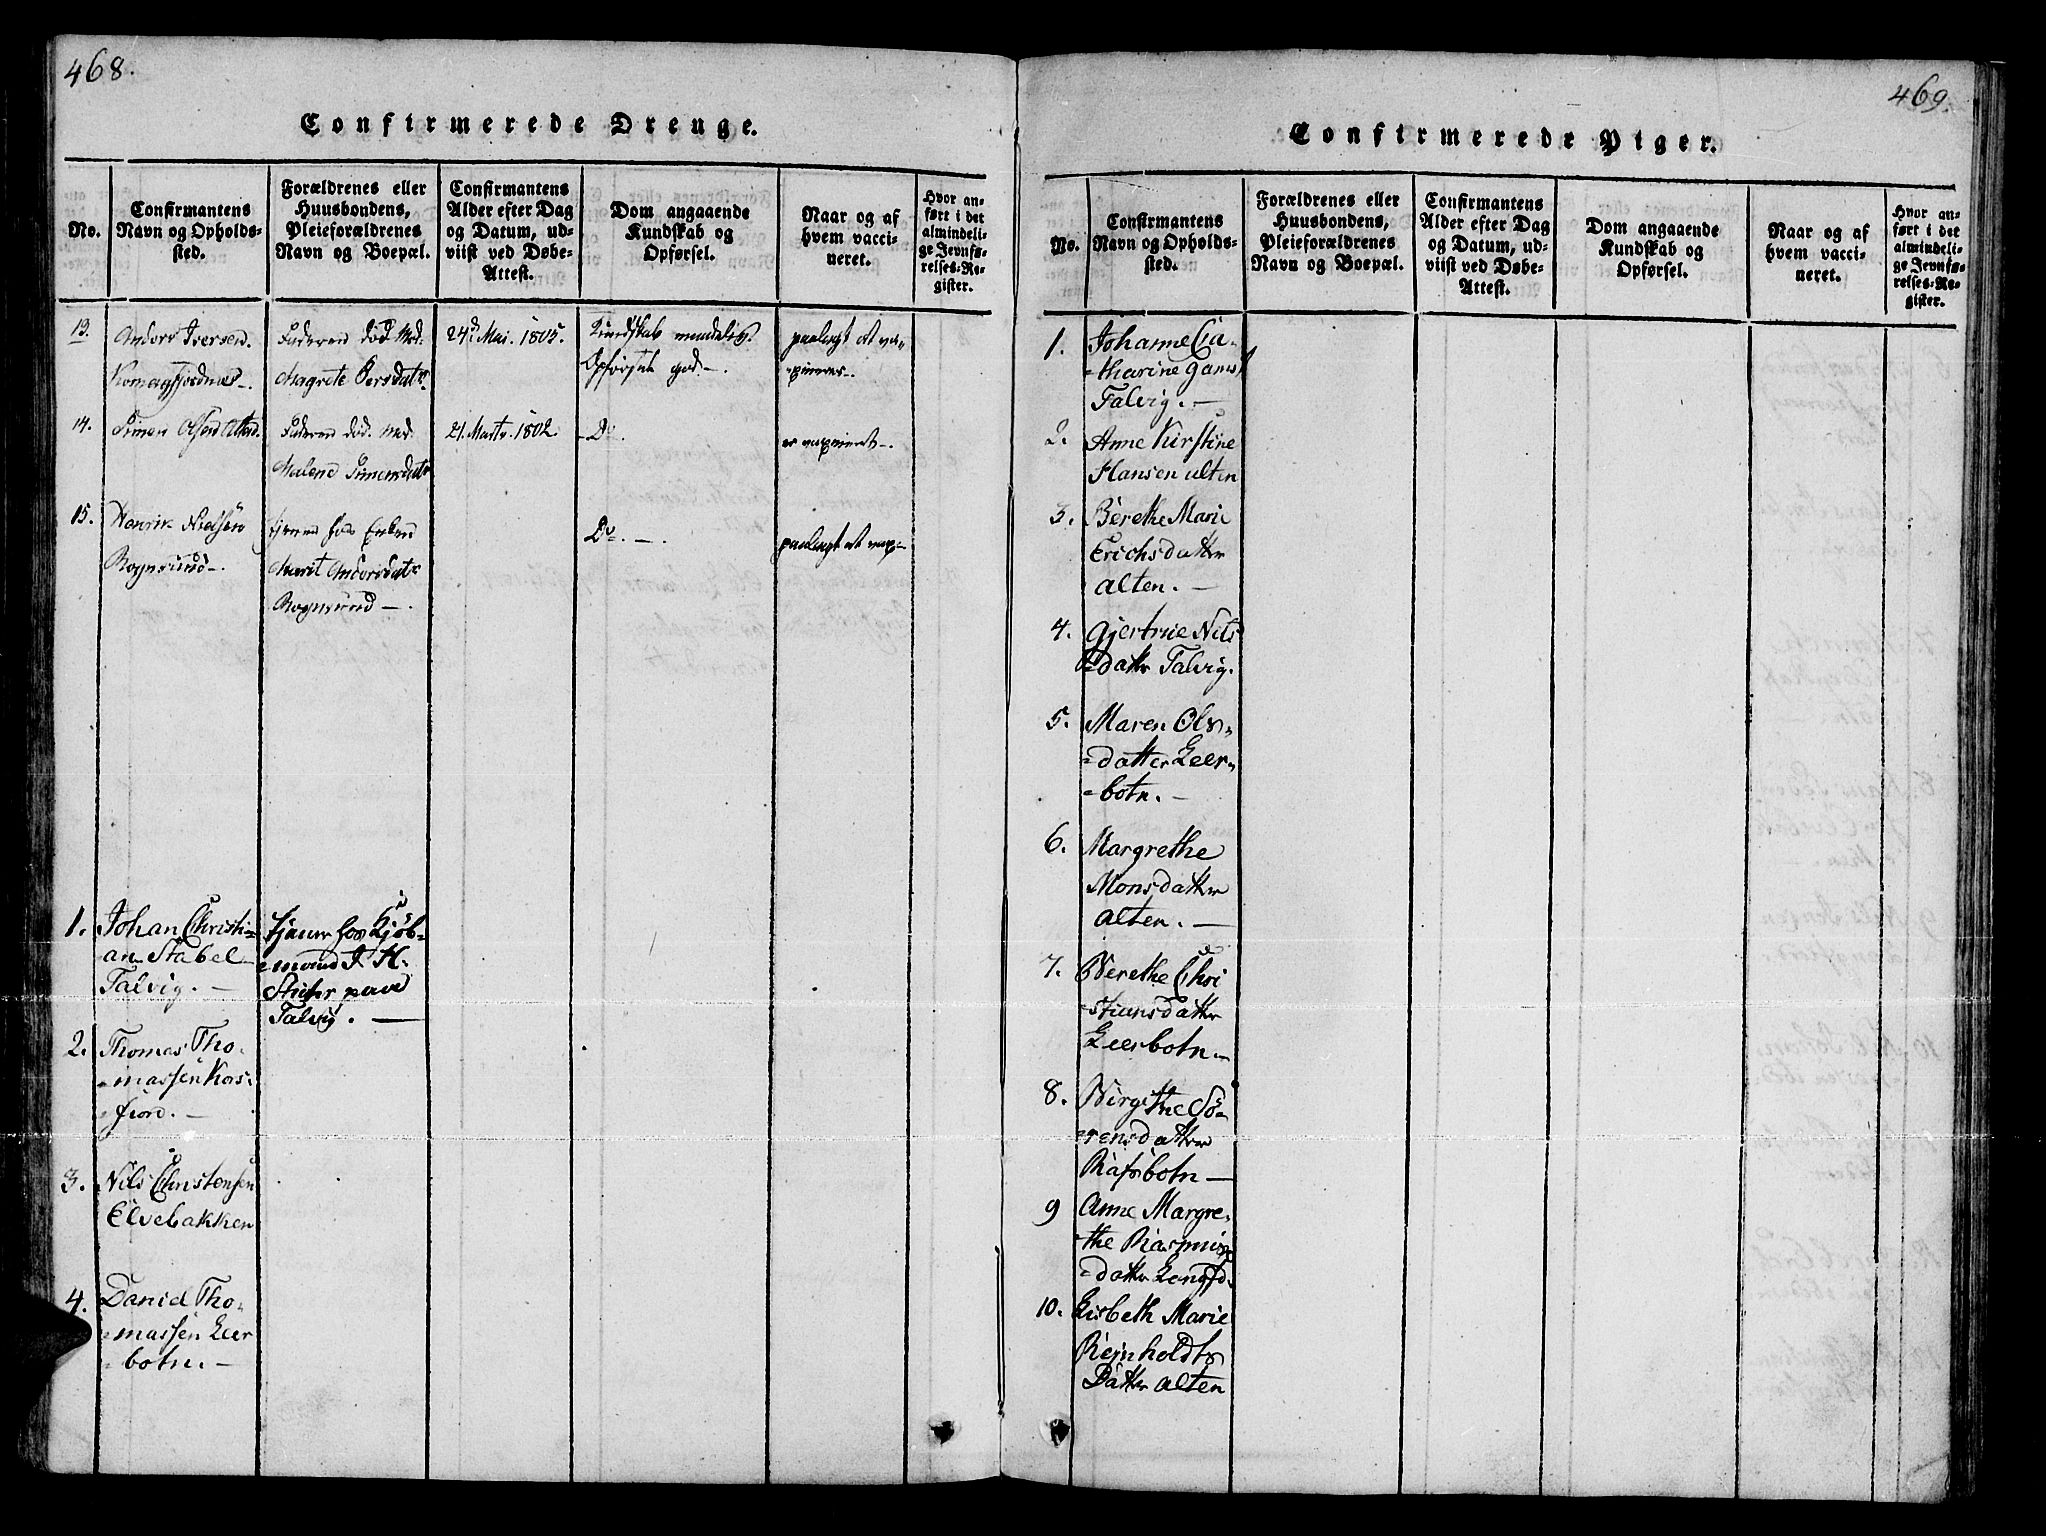 468.
Confirmerede Drenge.
No.
Confirmantens
Navn og Opholds-
sted.
Forældrenes eller
Huusbondens,
Pleieforældrenes
Navn og Boepæl.
Confirmantens
Alder efter Dag
og Datum, ud-
viist ved Døbe-
Attest.
Dom angaaende
Kundskab og
Opførsel.
Naar og af
hvem vacci-
neret.
Hvor an-
ført i det
almindeli-
ge Jevnfø-
relses-Re-
gister.
13. Anders Iversen Faderen död Mod. 24d Mai. 1805. Kundskab maadelig. paalagt at va-
Komagfjordnes. Magrete Persdatr Opförsel god.
14. Simen Olsen Alten. Faderen död. Mod. 21. Marts. 1802. Do. er vaxineret.
Malene Simensdatr
15. Henrik Nielsen tjener hos Enken Do. paalagt at vax
Rognsund. Marit Andersdatr
Rognsund
1. Johan Christi- tjener hos Kjöb-
an Stabel mand J. H.
Talvig. paa
Talvig.
2. Thomas Tho-
massen Kors-
fiord.
3. Nils Christensen
Elvebakken
4. Daniel Tho-
massen Leer
botn.
469.
Confirmerede Piger.
No.
Confirmantens
Navn og Opholds-
sted.
Forældrenes eller
Huusbondens,
Pleieforældrenes
Navn og Boepæl.
Confirmantens
Alder efter Dag
og Datum, ud-
viist ved Døbe-
Attest.
Dom angaaende
Kundskab og
Opførsel.
Naar og af
hvem vacci-
neret.
Hvor an-
ført i det
almindeli-
ge Jevnfø-
relses-Re-
gister.
1. Johanne Ca-
tharine Gams
Talvig.
2. Anne Kirstine
Hansen alten
3. Berethe Marie
Erichsdatter
alten.
4. Gjertrue Nils
datter Talvig.
5. Maren Ols-
datter Leer-
botn.
6. Margrethe
Monsdatter
alten.
7. Berethe Chri
stiansdatter
Leerbotn.
8. Birgithe Sö-
rensdatter
Rafsbotn
9 Anne Margre-
the Rasmus
datter Langfd.
10. Lisbeth Marie
Reinholdts
Datter alten